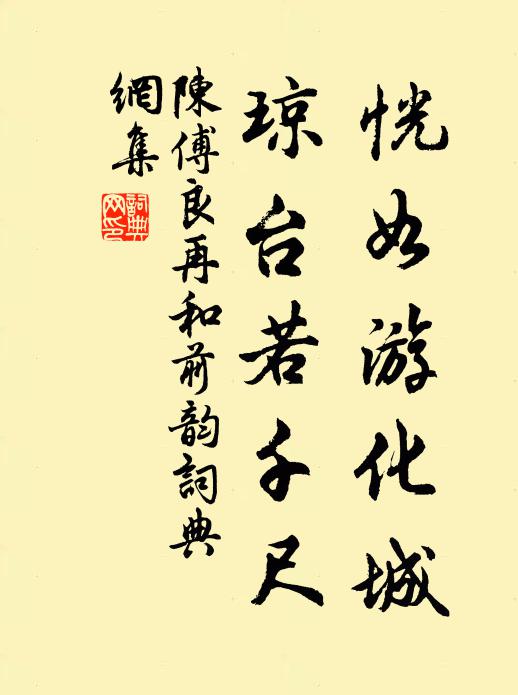 恍如游化城
琼台若千尺
陳傅良再和前韵詞典
網集
詞典网印